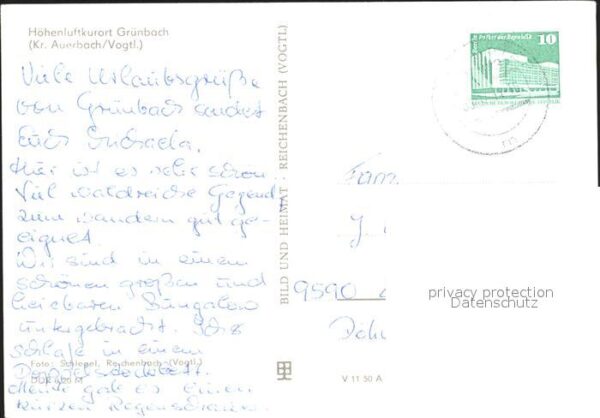 Höhenluftkurort Grünbach
(Kr. Auerbach/Vogtl.)
Viele Urlaubsgrüße
von Grünbach sendet
Euch
Hier ist es sehr schön.
Viel waldreiche Gegend,
zum wandern gut ge-
eignet.
Wir sind in einem
schönen großen und
heizbaren Bungalow
untergebracht. Ich
schlafe in einem
Doppelstockbett.
Heute gab es einen
kurzen Regenschauer.
Foto: Schlegel, Reichenbach (Vogtl.)
BILD UND HEIMAT · REICHENBACH (VOGTL)
V 11 50 A
10
Fam.
9590
privacy protection
Datenschutz